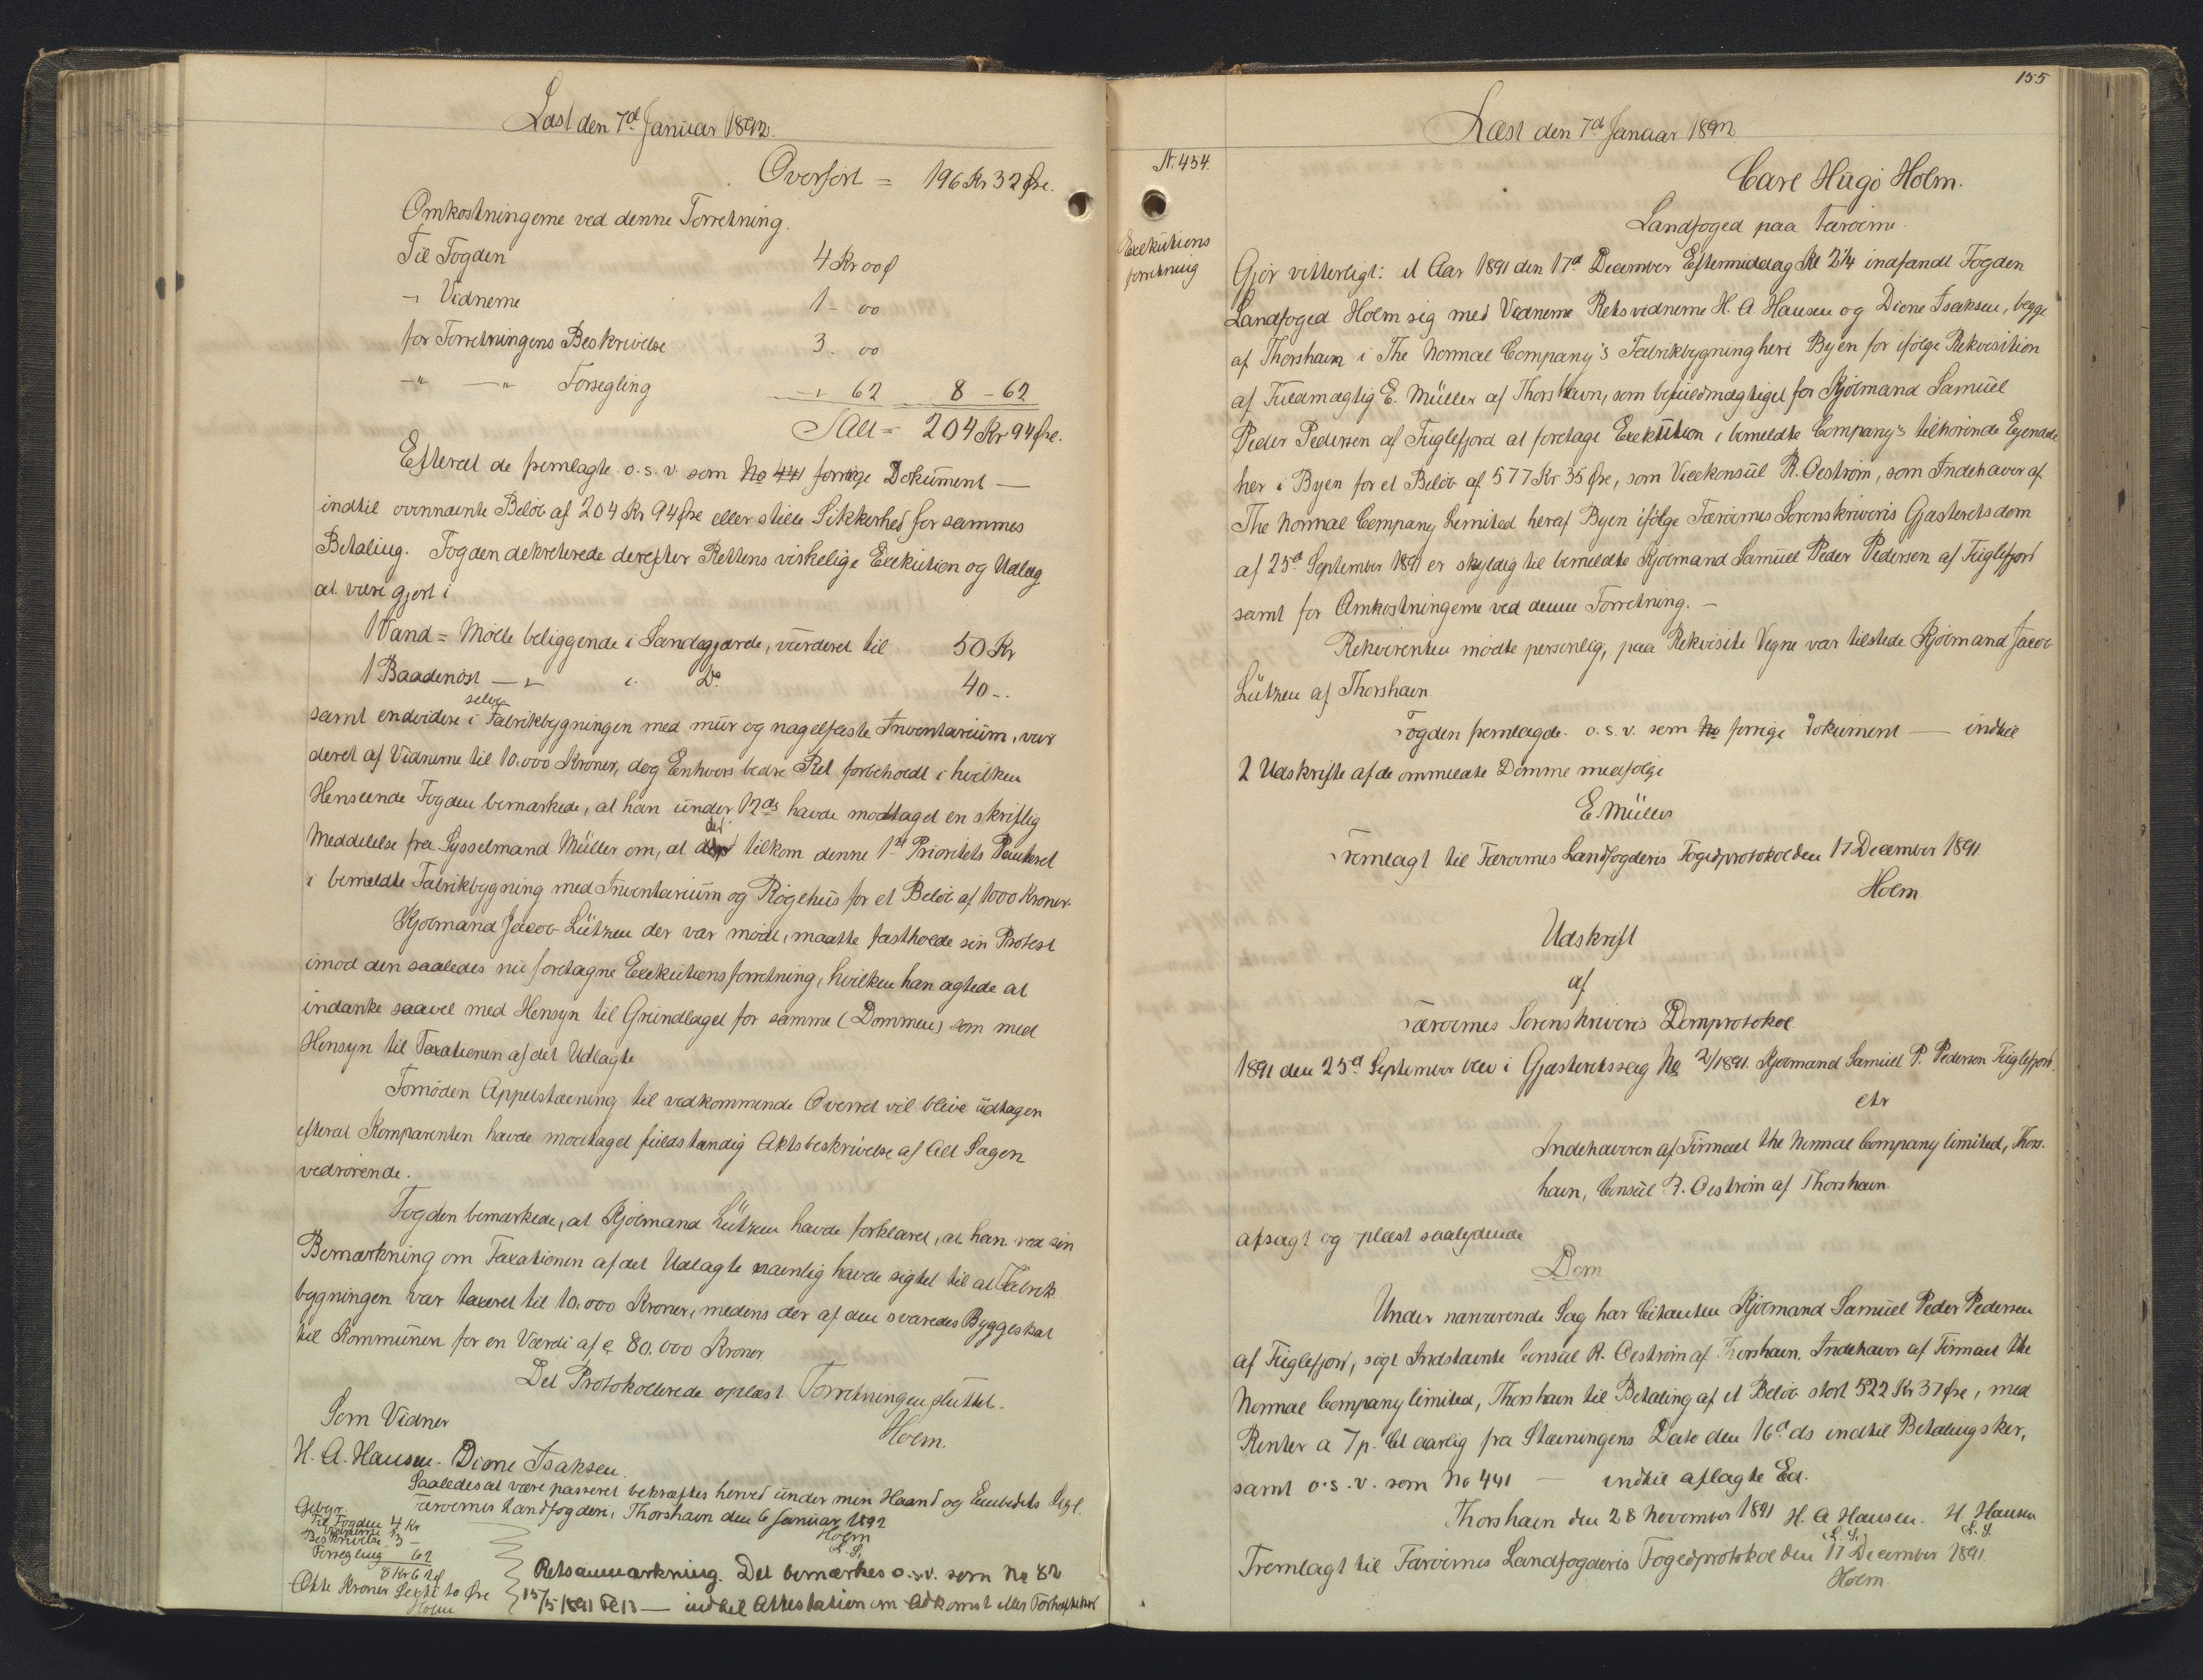 Læst den 7d Januar 1892.
Overført = 196 Kr 32 Øre.
Omkostningerne ved denne Forretning.
Til Fogden 4 Kr 00 ø
-"- Vidnerne 1 - 00
for Forretningens Beskrivelse 3. 00
-"- -"- Forsegling -"- 62 8 - 62
I Alt = 204 Kr 94 Øre.
Efterat de fremlagte o.s.v. som No 441 forrige Dokument —
indtil ovennævnte Beløb af 204 Kr 94 Øre eller stille Sikkerhed for sammes
Betaling. Fogden dekreterede derefter Rettens virkelige Exekution og Udlæg
at være gjort i
1 Vand = Mølle beliggende i Sandegjærde, vurderet til 50 Kr
1 Baadenøst — " i Do 40 -.
samt endvidere i selve Fabrikbygningen med mur og nagelfaste Inventarium, vur
deret af Vidnerne til 10.000 Kroner, dog Enhvers bedre Ret forbeholdt i hvilken
Henseende Fogden bemærkede, at han under 12 ds havde modtaget en skriftlig
Meddelelse fra Sysselmand Müller om, at der tilkom denne 1ste Prioritets Panteret
i bemeldte Fabrikbygning med Inventarium og Røgehus for et Beløb af 1000 Kroner.
Kjøbmand Jacob Lützen der var mødt, maatte fastholde sin Protest
imod den saaledes nu foretagne Exekutionsforretning, hvilken han agtede at
indanke saavel med Hensyn til Grundlaget for samme (Dommen) som med
Hensyn til Taxationen af det Udlagte
Fornøden Appelstævning til vedkommende Overret vil blive udtagen
efterat Komparenten havde modtaget fuldstændig Aktsbeskrivelse af Alt Sagen
vedrørende.
Fogden bemærkede, at Kjøbmand Lützen havde forklaret, at han ved sin
Bemærkning om Taxationen af det Udlagte navnlig havde sigtet til at Fabrik
bygningen var taxeret til 10.000 Kroner, medens der af den svaredes Byggeskat
til Kommunen for en Værdi af c 80.000 Kroner
Det Protokollerede oplæst Forretningen sluttet.
Som Vidner Holm.
H. A. Hansen. Dione Isaksen.
Saaledes at være passeret bekræftes herved under min Haand og Embedets Segl.
Færøernes Landfogderi, Thorshavn den 6 Januar 1892
Holm
L. S.
Gebyr.
Til Fogden 4 Kr
" Vidnerne 1 -
Beskrivelse 3 -
Forsegling 62
8 Kr 62 ø
Otte Kroner Sexti to Øre
Holm
Retsanmærkning. Det bemærkes o.s.v. som No 82
15/5 1891 — indtil Attestation om Adkomst eller Forhæftelser
155
Læst den 7d Januar 1892
N. 454.
Exekutions
forretning
Carl Hugo Holm.
Landfoged paa Færøerne.
Gjør vitterligt: at Aar 1891 den 17d December Eftermiddag Kl 2¼ indfandt Fogden
Landfoged Holm sig med Vidnerne Retsvidnerne H. A. Hansen og Dione Isaksen, begge
af Thorshavn i The Normal Company's Fabrikbygning heri Byen for ifølge Rekvisition
af Fuldmægtig E. Müller af Thorshavn, som befuldmægtiget for Kjøbmand Samuel
Peder Pedersen af Fuglefjord at foretage Exekution i bemeldte Company's tilhørende Eyendele
her i Byen for et Beløb af 577 Kr 35 Øre, som Vicekonsul R. Oestrøm, som Indehaver af
The Normal Company Limited heraf Byen ifølge Færøernes Sorenskriveris Gæsteretsdom
af 25d September 1891 er skyldig til bemeldte Kjøbmand Samuel Peder Pedersen af Fuglefjord
samt for Omkostningerne ved denne Forretning. -
Rekvirenten mødte personlig, paa Rekvisiti Vegne var tilstede Kjøbmand Jacob
Lützen af Thorshavn.
Fogden fremlagde o.s.v. som No forrige Dokument — indtil
2 Udskrifte af de ommeldte Domme medfølge
E. Müller
Fremlagt til Færøernes Landfogderis Fogedprotokol den 17 December 1891
Holm.
Udskrift
af
Færøernes Sorenskriveris Domprotokol
1891 den 25d September blev i Gjæsteretssag No 2/1891. Kjøbmand Samuel P. Pedersen Fuglefjord.
ctr
Indehaveren af Firmaet the Normal Company limited, Thors-
havn, Consul R. Oestrøm af Thorshavn.
afsagt og oplæst saalydende
Dom
Under nærværende Sag har Citanten Kjøbmand Samuel Peder Pedersen
af Fuglefjord, søgt Indstævnte Consul R. Oestrøm af Thorshavn. Indehaver af Firmaet the
Normal Company limited, Thorshavn til Betaling af et Beløb stort 522 Kr 37 Øre, med
Renter a 7 p. Ct aarlig fra Stævningens Dato den 16d ds indtil Betaling sker,
samt o.s.v. som No 441 — indtil aflagte Ed.
Thorshavn den 28 November 1891 H. A Hansen. H. Hansen
L. S. L. S.
Fremlagt til Færøernes Landfogderis Fogedprotokol den 17 December 1891.
Holm.